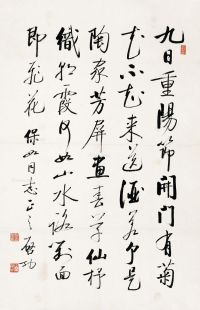 九日重陽節開門有菊
花不知来送酒若个是
陶家芳屏畫春草仙杼
織朝霞何如山水路對面
即飛花 同志正之 啟功